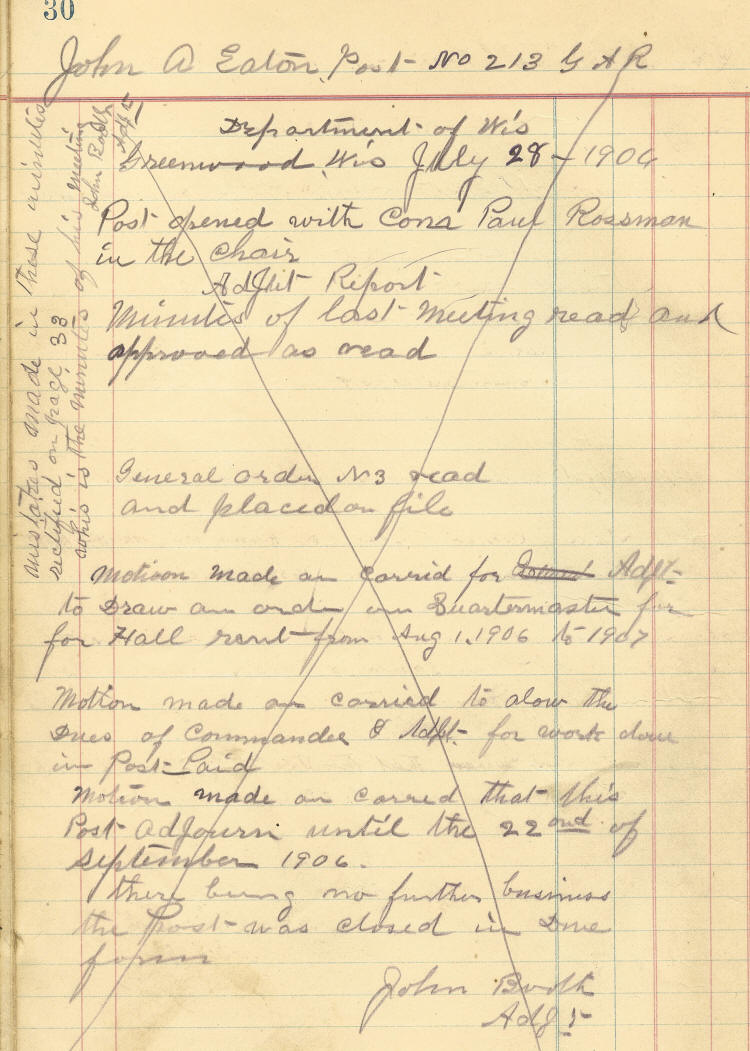 30
John A Eaton Post No 213 G A R
Department of Wis
Greenwood, Wis July 28 - 1906
Post opened with Com Paul Rossman
in the Chair
Adjtit Report
Minutes of last Meeting read and
approved as read
General order No 3 read
and placed on file
Motioon made an Carrid for Adjt-
to Draw an order on Quartermaster for
for Hall rent from Aug 1, 1906 to 1907
Motion made an carried to alow the
Dues of Commander & Adjt- for work done
in Post Paid
Motion made an carred that this
Post Adjourn until the 22ond of
September 1906.
there being no further business
the Post was closed in Due
form
John Booth
Adjt
mistakes made in these minutes
rectified on page 33
this is the minutes of his meeting
John Booth
Adjt